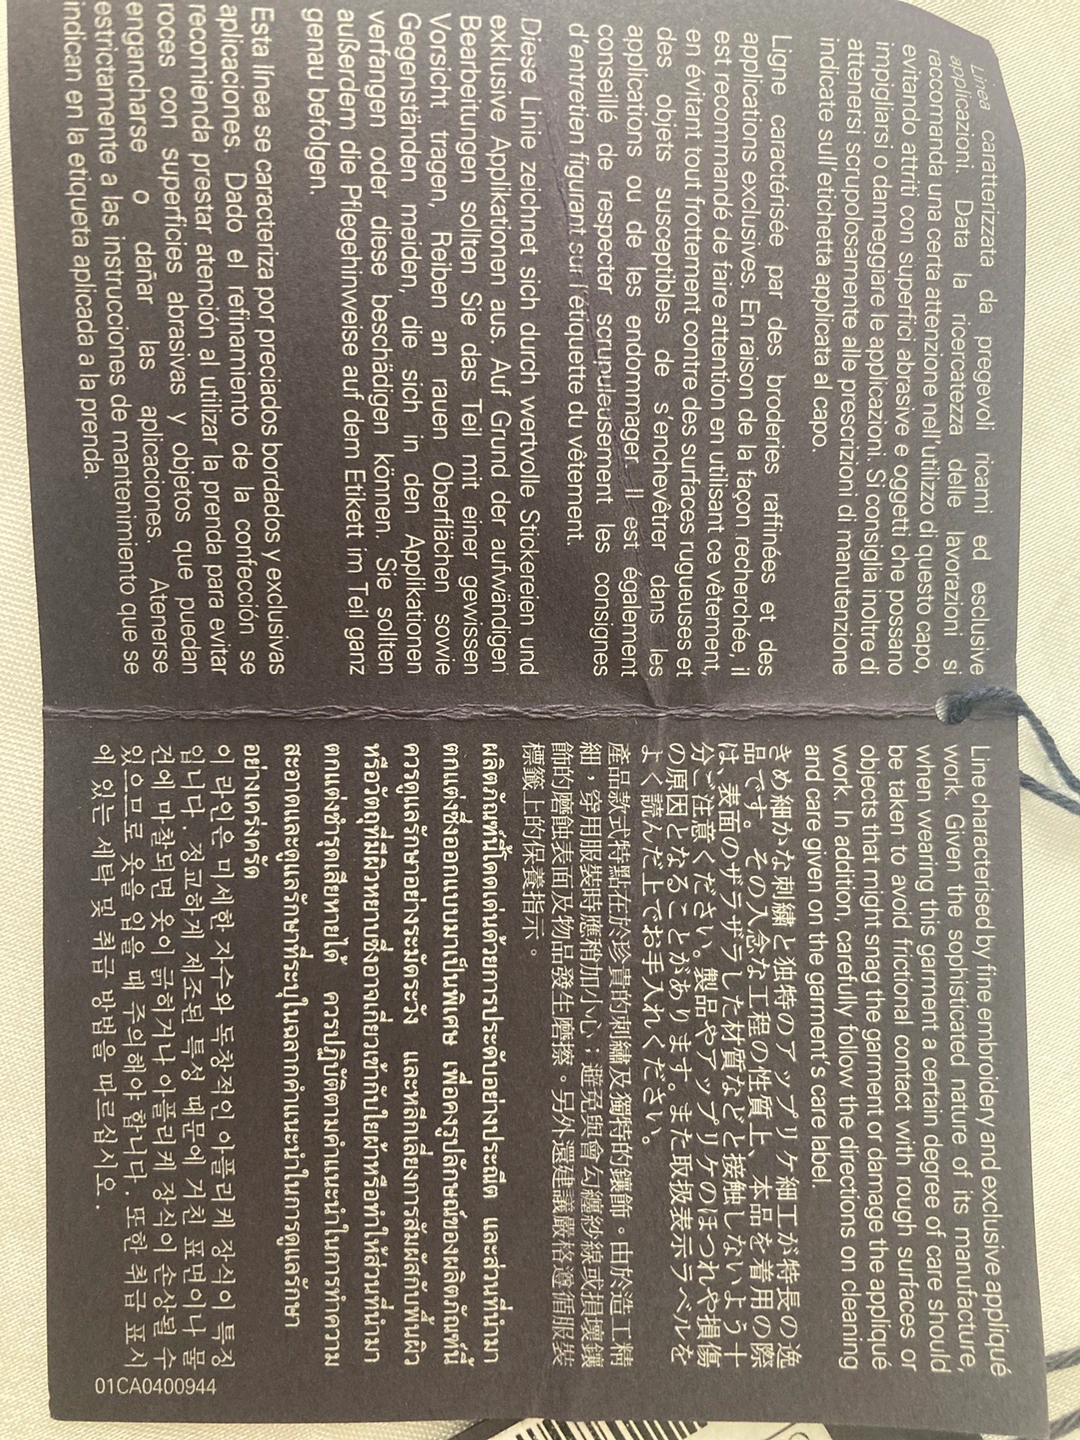 Linea caratterizzata da pregevoli ricami ed esclusive
applicazioni. Data la ricercatezza delle lavorazioni si
raccomanda una certa attenzione nell'utilizzo di questo capo,
evitando attriti con superfici abrasive e oggetti che possano
impigliarsi o danneggiare le applicazioni. Si consiglia inoltre di
attenersi scrupolosamente alle prescrizioni di manutenzione
indicate sull'etichetta applicata al capo.
Ligne caractérisée par des broderies raffinées et des
applications exclusives. En raison de la façon recherchée, il
est recommandé de faire attention en utilisant ce vêtement,
en évitant tout frottement contre des surfaces rugueuses et
des objets susceptibles de s'enchevêtrer dans les
applications ou de les endommager. Il est également
conseillé de respecter scrupuleusement les consignes
d'entretien figurant sur l'étiquette du vêtement.
Diese Linie zeichnet sich durch wertvolle Stickereien und
exklusive Applikationen aus. Auf Grund der aufwändigen
Bearbeitungen sollten Sie das Teil mit einer gewissen
Vorsicht tragen, Reiben an rauen Oberflächen sowie
Gegenständen meiden, die sich in den Applikationen
verfangen oder diese beschädigen können. Sie sollten
außerdem die Pflegehinweise auf dem Etikett im Teil ganz
genau befolgen.
Esta línea se caracteriza por preciados bordados y exclusivas
aplicaciones. Dado el refinamiento de la confección se
recomienda prestar atención al utilizar la prenda para evitar
roces con superficies abrasivas y objetos que puedan
engancharse o dañar las aplicaciones. Atenerse
estrictamente a las instrucciones de mantenimiento que se
indican en la etiqueta aplicada a la prenda.
Line characterised by fine embroidery and exclusive appliqué
work. Given the sophisticated nature of its manufacture,
when wearing this garment a certain degree of care should
be taken to avoid frictional contact with rough surfaces or
objects that might snag the garment or damage the appliqué
work. In addition, carefully follow the directions on cleaning
and care given on the garment's care label.
きめ細かな刺繍と独特のアップリケ細工が特長の逸
品です。その入念な工程の性質上、本品を着用の際
は、表面のザラザラした材質などと接触しないよう十
分ご注意ください。製品やアップリケのほつれや損傷
の原因となることがあります。また取扱表示ラベルを
よく読んだ上でお手入れください。
產品款式特點在於珍貴的刺繡及獨特的鑲飾。由於造工精
細，穿用服裝時應稍加小心；避免與會勾纏紗線或損壞鑲
飾的磨蝕表面及物品發生磨擦。另外還建議嚴格遵循服裝
標籤上的保養指示。
ผลิตภัณฑ์นี้โดดเด่นด้วยการประดับอย่างประณีต และส่วนที่นำมา
ตกแต่งซึ่งออกแบบมาเป็นพิเศษ เพื่อคงรูปลักษณ์ของผลิตภัณฑ์นี้
ควรดูแลรักษาอย่างระมัดระวัง และหลีกเลี่ยงการสัมผัสกับพื้นผิว
หรือวัตถุที่มีผิวหยาบซึ่งอาจเกี่ยวเข้ากับใยผ้าหรือทำให้ส่วนที่นำมา
ตกแต่งชำรุดเสียหายได้ ควรปฏิบัติตามคำแนะนำในการทำความ
สะอาดและดูแลรักษาที่ระบุในฉลากคำแนะนำในการดูแลรักษา
อย่างเคร่งครัด
이 라인은 미세한 자수와 독창적인 아플리케 장식이 특징
입니다. 정교하게 제조된 특성 때문에 거친 표면이나 물
건에 마찰되면 옷이 긁히거나 아플리케 장식이 손상될 수
있으므로 옷을 입을 때 주의해야 합니다. 또한 취급 표시
에 있는 세탁 및 취급 방법을 따르십시오.
01CA0400944